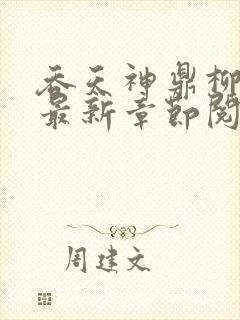 吞天神鼎柳
最新章节阅
周建文